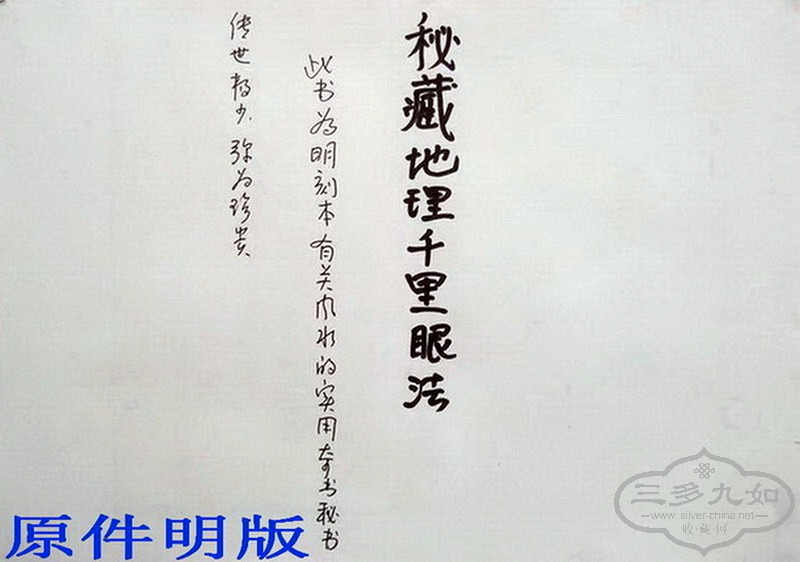 秘藏地理千里眼法
此书为明刻本有关风水的实用奇书秘书
传世极少.弥为珍贵
原件明版
三多九如
—www.silver-china.net—
收·藏·网